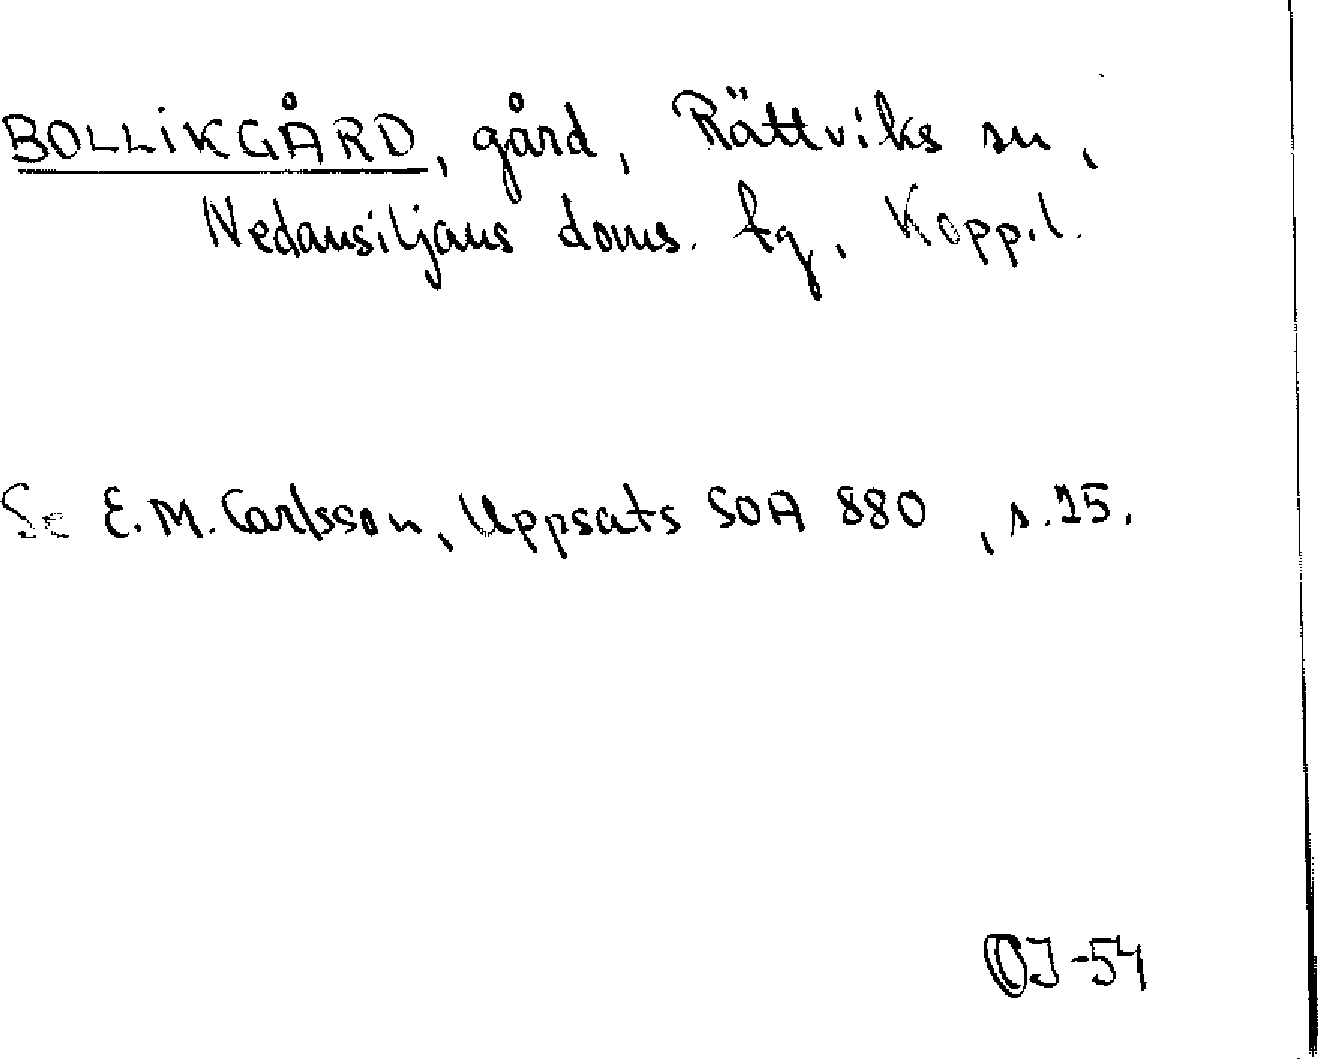 BOLLIKGÅRD, gård, Rättviks sn,
Nedansiljans doms. tg, Kopp.l.
Se E.M. Carlsson, Uppsats SOA 880, s. 15.
OJ-54